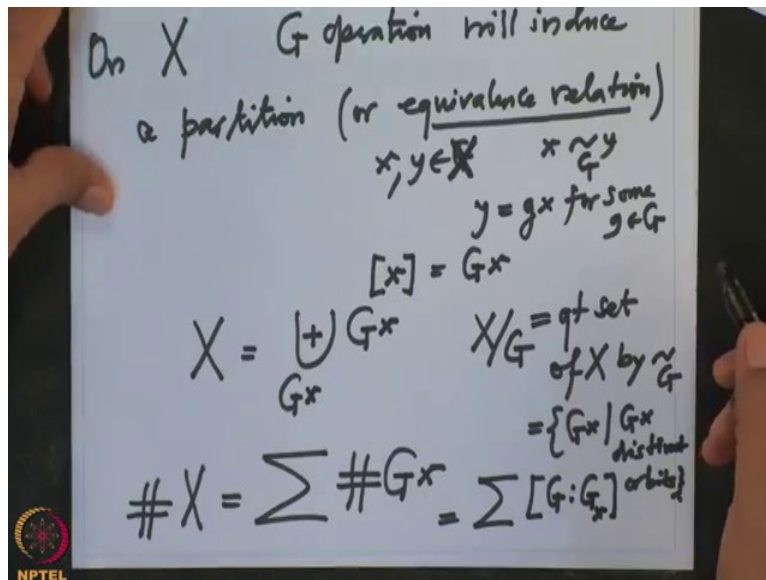 On X G operation will induce
a partition (or equivalence relation)
x, y ∈ X x ~_G y
y = gx for some
g ∈ G
[x] = Gx
X = ⨄_{Gx} Gx X/G = qt set
of X by ~_G
= {Gx | Gx
distinct
orbits}
#X = ∑ #Gx = ∑ [G:G_x]
NPTEL